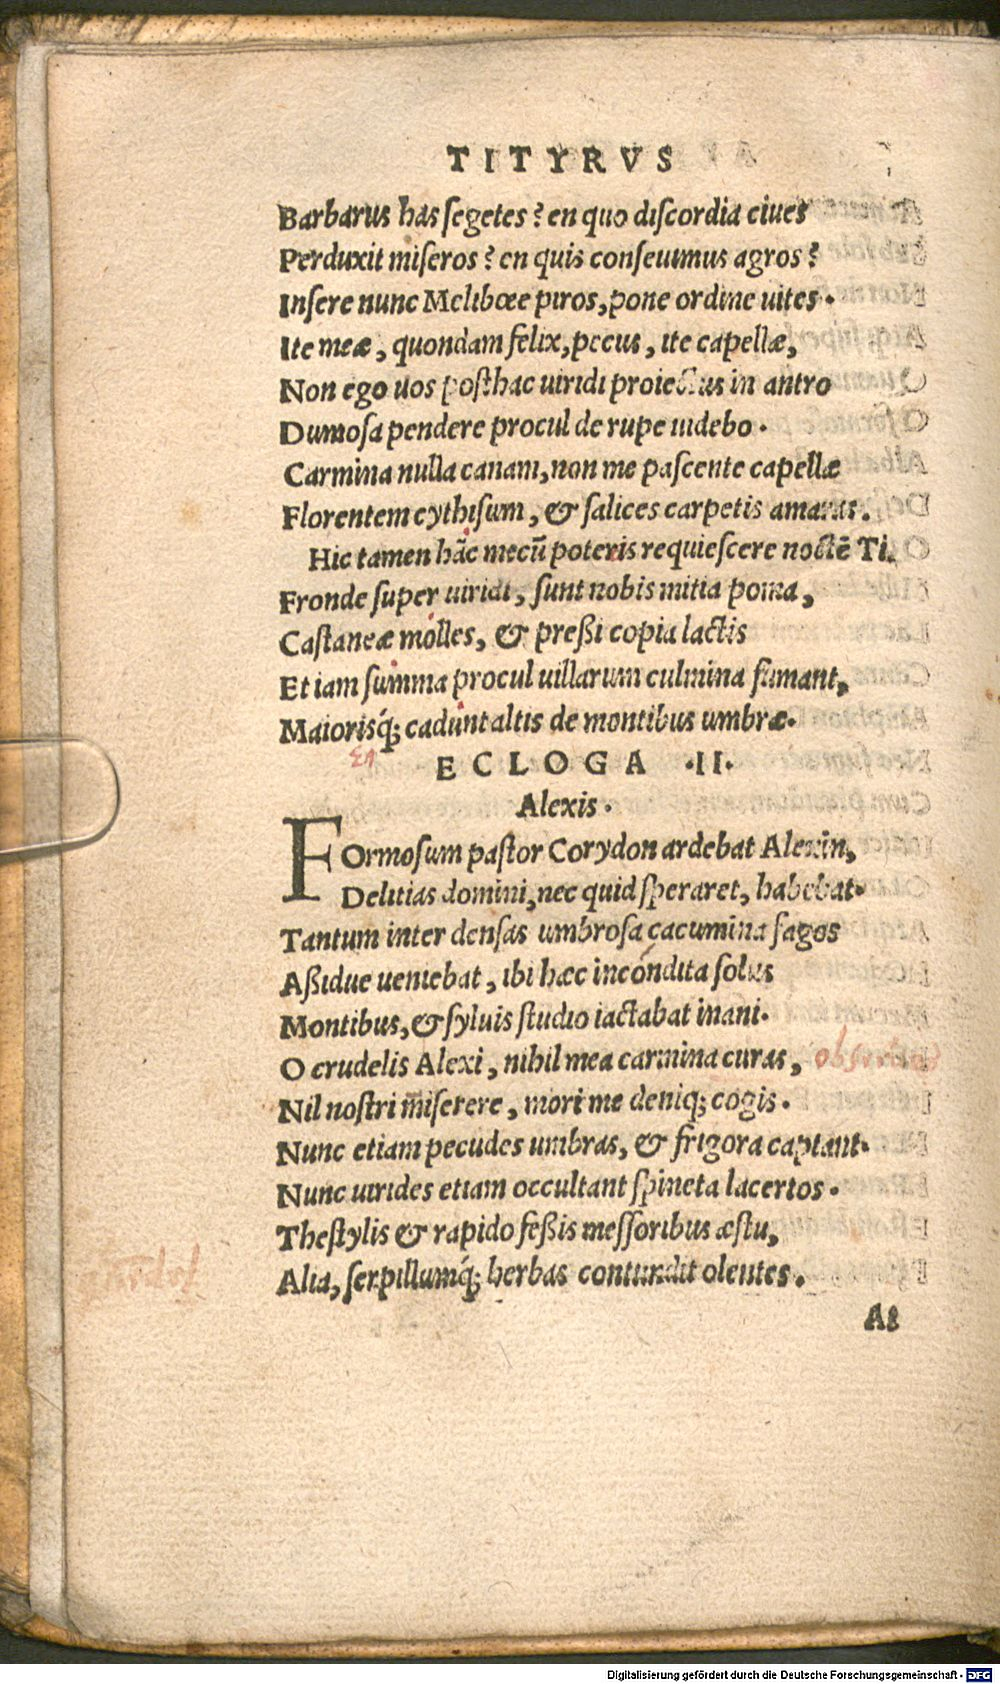 TITYRVS
Barbarus has segetes? en quo discordia ciues
Perduxit miseros? en quis conseuimus agros?
Insere nunc Melibœe piros, pone ordine uites.
Ite meæ, quondam felix, pecus, ite capellæ,
Non ego uos posthac uiridi proiectus in antro
Dumosa pendere procul de rupe uidebo.
Carmina nulla canam, non me pascente capellæ
Florentem cythisum, & salices carpetis amaras.
Hic tamen hãc mecũ poteris requiescere noctẽ Ti.
Fronde super uiridi, sunt nobis mitia poma,
Castaneæ molles, & preßi copia lactis
Et iam summa procul uillarum culmina fumant,
Maiorisq́; cadunt altis de montibus umbræ.
ECLOGA .II.
Alexis.
FOrmosum pastor Corydon ardebat Alexin,
Delitias domini, nec quid speraret, habebat.
Tantum inter densas umbrosa cacumina fagos
Aßidue ueniebat, ibi hæc incondita solus
Montibus, & syluis studio iactabat inani.
O crudelis Alexi, nihil mea carmina curas,
Nil nostri miserere, mori me deniq; cogis.
Nunc etiam pecudes umbras, & frigora captant.
Nunc uirides etiam occultant spineta lacertos.
Thestylis & rapido feßis messoribus æstu,
Alia, serpillumq́; herbas contundit olentes.
At
Digitalisierung gefördert durch die Deutsche Forschungsgemeinschaft - DFG